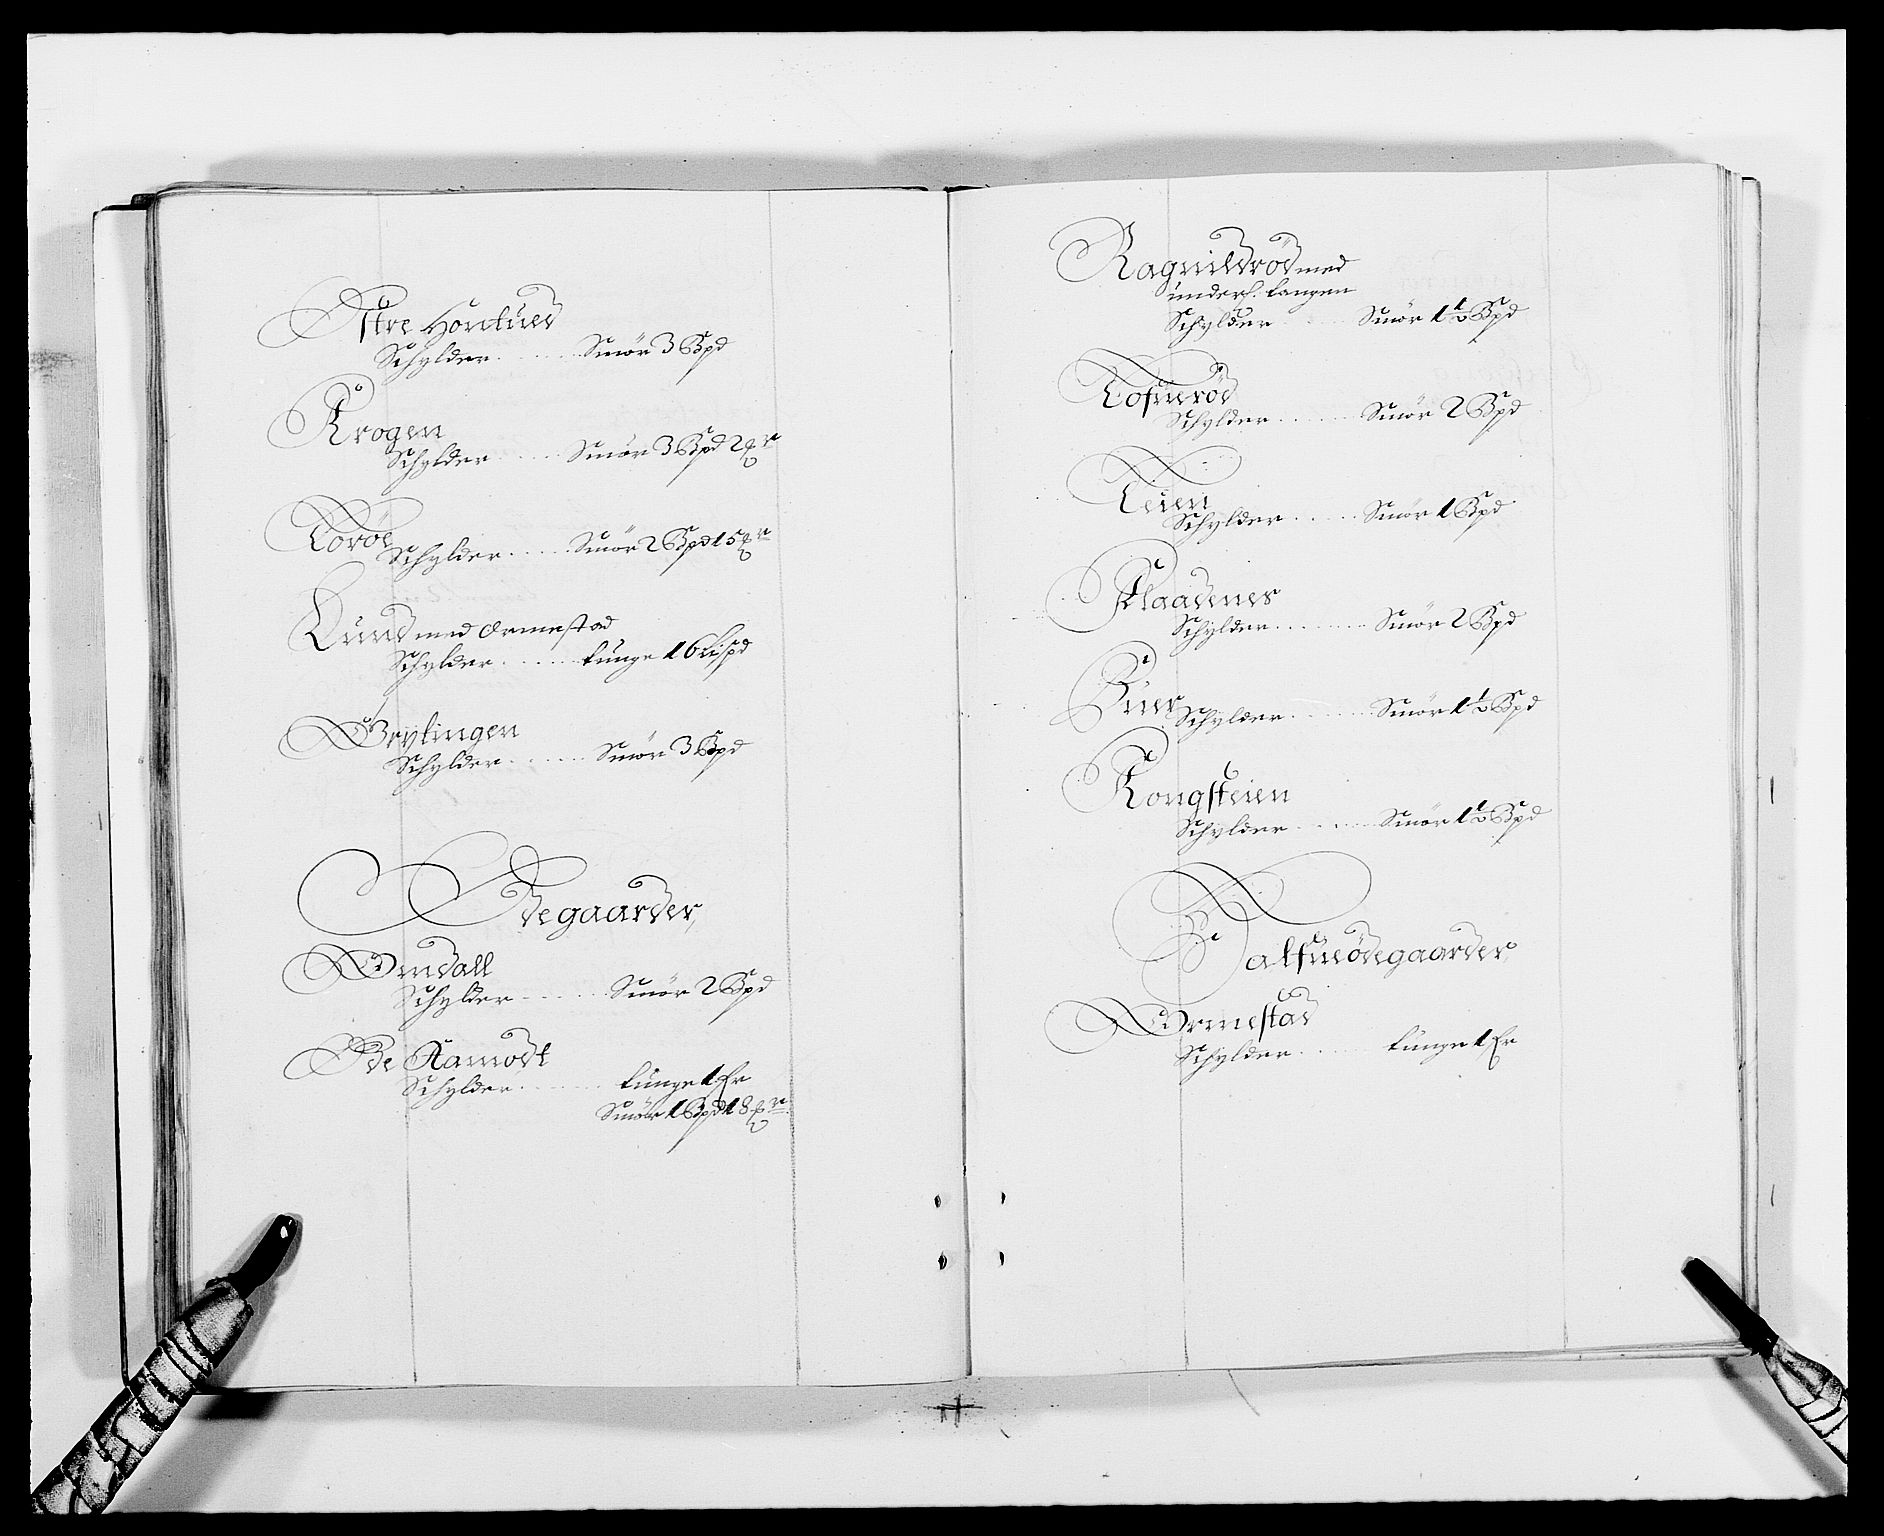 Østre Hontued
Schylder . . . . . . Smör 3 Bpd
Krogen
Schylder . . . . . Smör 3 Bpd 2
Torøe
Schylder . . . . . Smör 2 Bpd 15
Lund med Ormestad
Schylder . . . . . tunge 1 6 Lispd
Grytingen
Schylder . . . . . . Smör 3 Bpd
Ødegaarder
Omdall
Schylder . . . . . . Smör 2 Bpd
Øde Aamodt
Schylder . . . . . . . tunge 1 fr
Smör 1 Bpd 18
Ragnildrød med
underl. tangen
Schylder . . . . . Smör 1½ Bpd
Tofuerød
Schylder . . . . . . Smör 2 Bpd
Teien
Schylder . . . . . Smör 1 Bpd
Flaadenes
Schylder . . . . . . . Smör 2 Bpd
Buer
Schylder . . . . . . Smör 1½ Bpd
Kongsteien
Schylder . . . . . Smör 1½ Bpd
Halfueødegaarder
Ormestad
Schylder . . . . . . tunge 1 fr